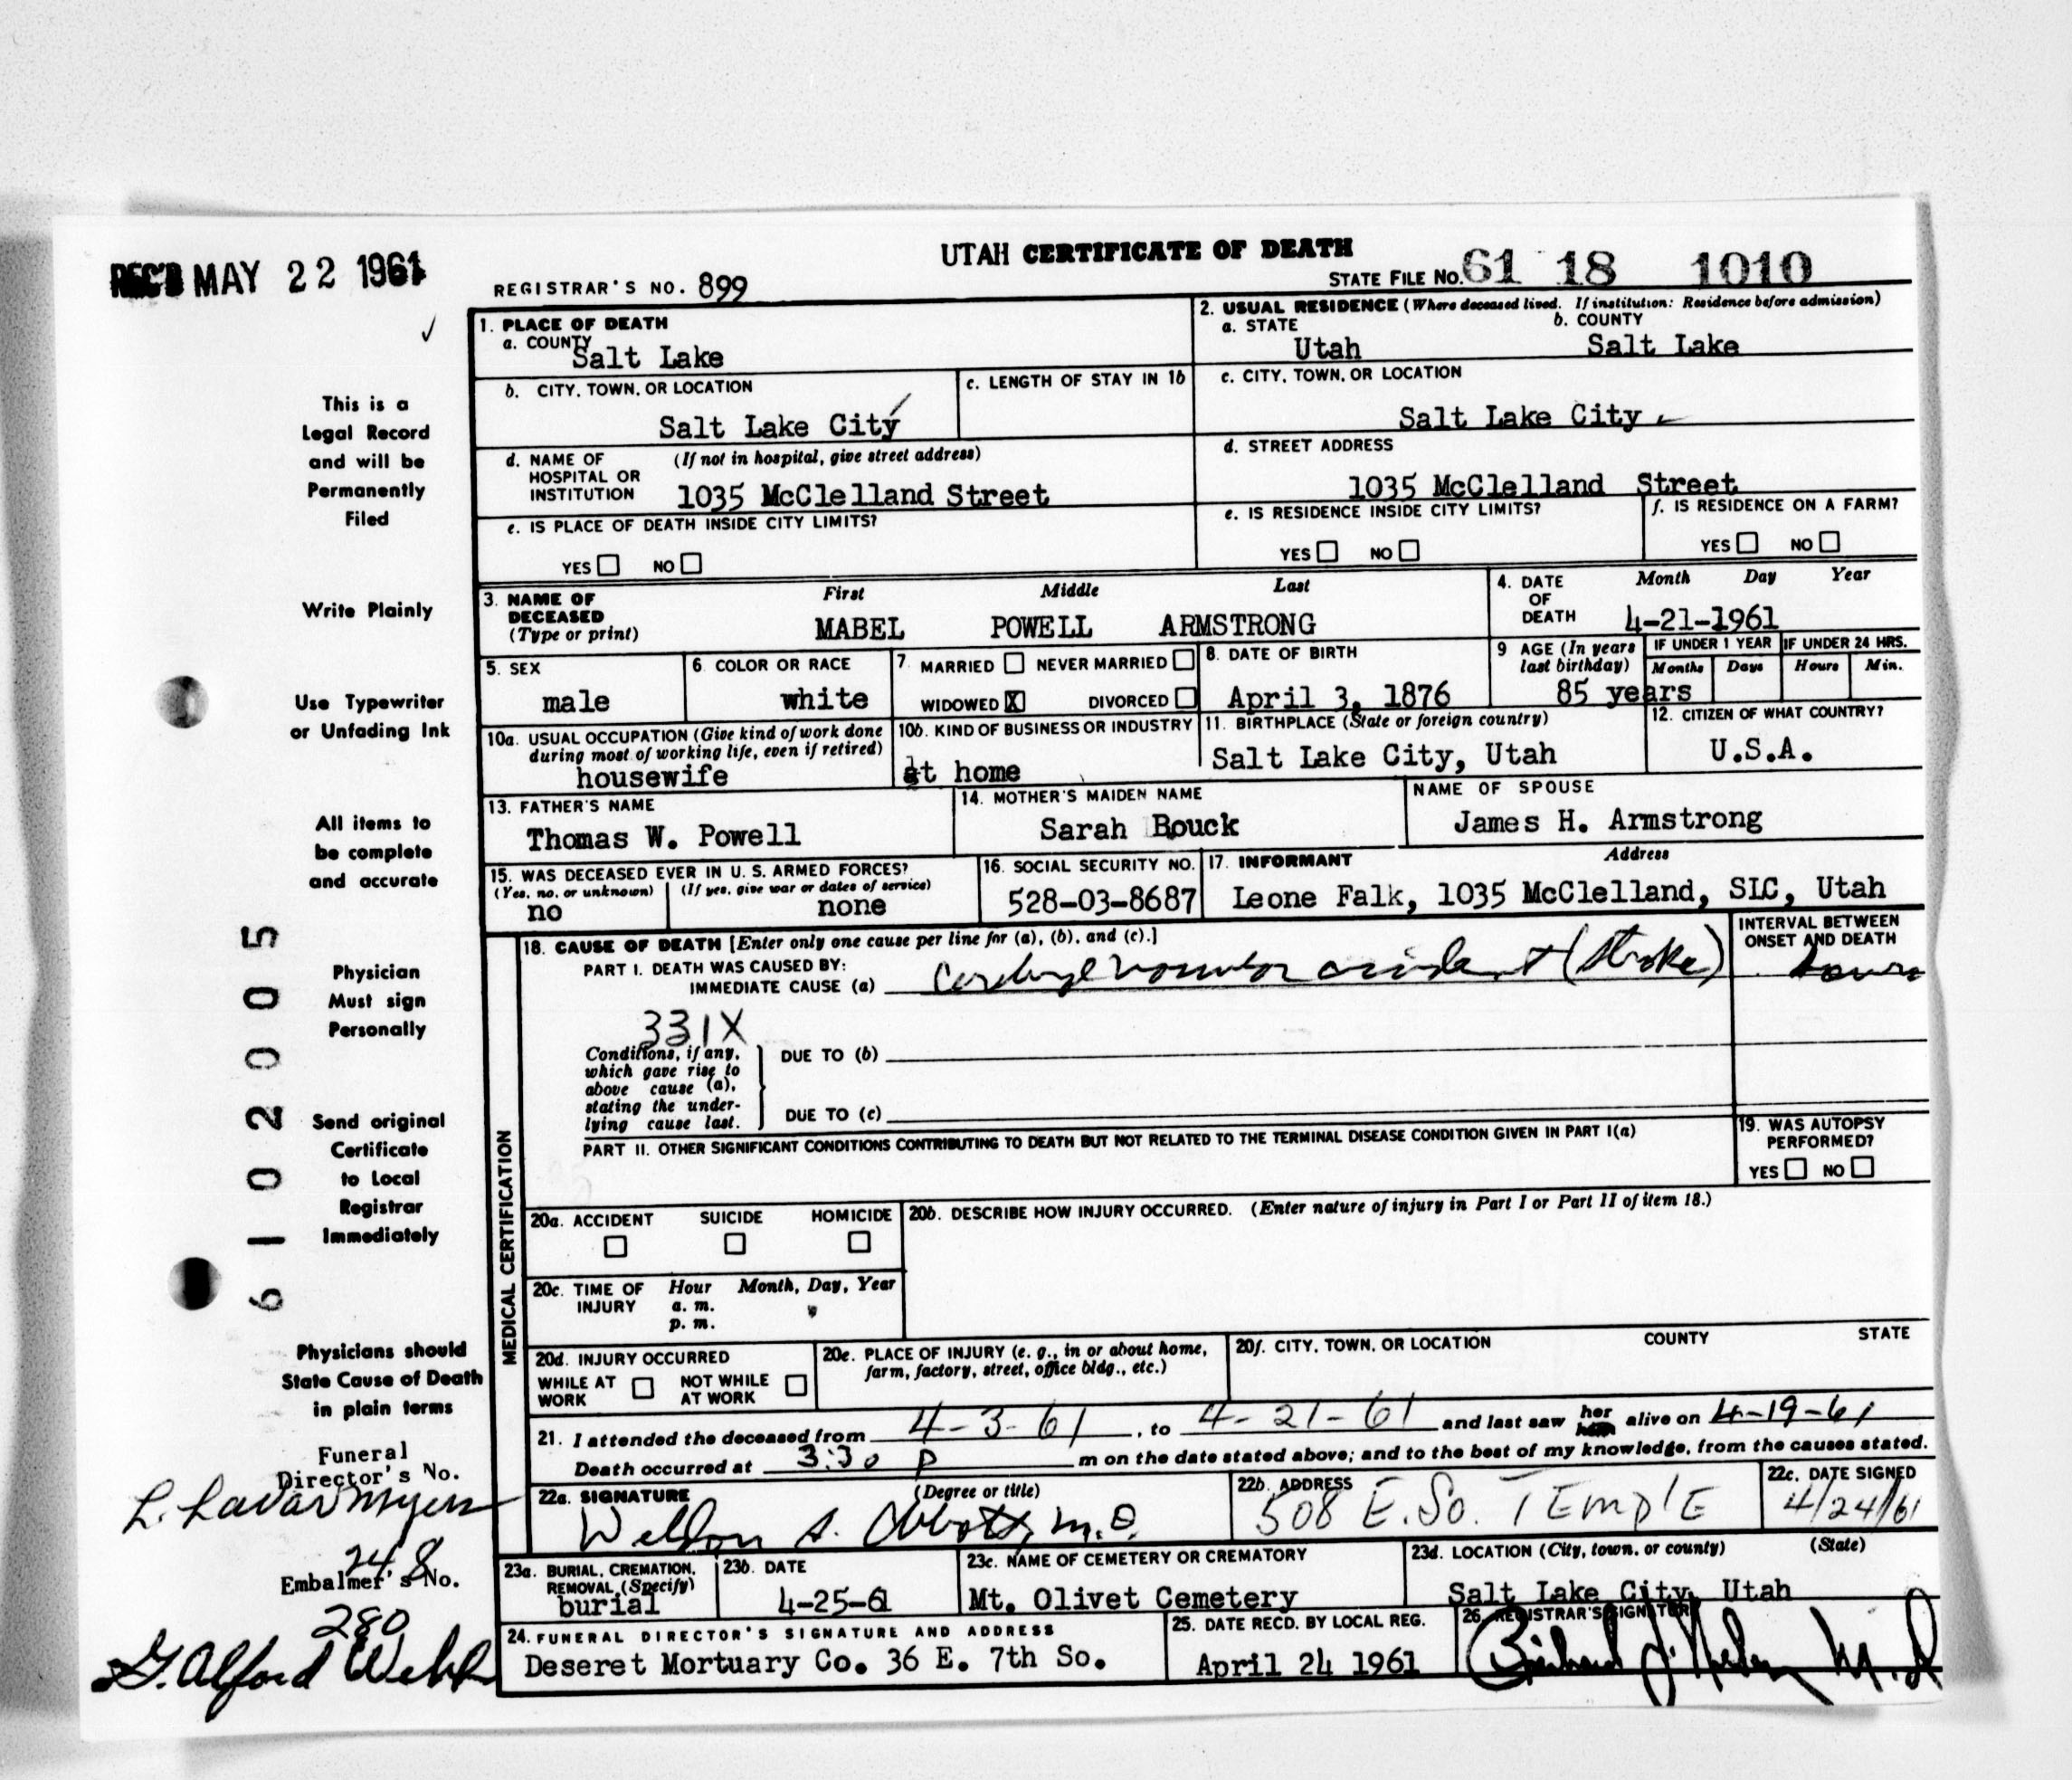 REC'D MAY 22 1961
UTAH CERTIFICATE OF DEATH
REGISTRAR'S NO. 899
STATE FILE NO. 61 18 1010
This is a
Legal Record
and will be
Permanently
Filed
Write Plainly
Use Typewriter
or Unfading Ink
All items to
be complete
and accurate
Physician
Must sign
Personally
Send original
Certificate
to Local
Registrar
Immediately
Physicians should
State Cause of Death
in plain terms
Funeral
Director's No.
L. Lavar Myers
248
Embalmer's No.
280
G. Alford Webb
6102005
1. PLACE OF DEATH
a. COUNTY
Salt Lake
2. USUAL RESIDENCE (Where deceased lived. If institution: Residence before admission)
a. STATE
Utah
b. COUNTY
Salt Lake
b. CITY, TOWN, OR LOCATION
Salt Lake City
c. LENGTH OF STAY IN 1b
c. CITY, TOWN, OR LOCATION
Salt Lake City
d. NAME OF (If not in hospital, give street address)
HOSPITAL OR
INSTITUTION 1035 McClelland Street
d. STREET ADDRESS
1035 McClelland Street
e. IS PLACE OF DEATH INSIDE CITY LIMITS?
YES NO
e. IS RESIDENCE INSIDE CITY LIMITS?
YES NO
f. IS RESIDENCE ON A FARM?
YES NO
3. NAME OF
DECEASED
(Type or print)
First Middle Last
MABEL POWELL ARMSTRONG
4. DATE
OF
DEATH
Month Day Year
4-21-1961
5. SEX
male
6. COLOR OR RACE
white
7. MARRIED NEVER MARRIED
WIDOWED X DIVORCED
8. DATE OF BIRTH
April 3, 1876
9 AGE (In years
last birthday)
85 years
IF UNDER 1 YEAR
Months Days
IF UNDER 24 HRS.
Hours Min.
10a. USUAL OCCUPATION (Give kind of work done
during most of working life, even if retired)
housewife
10b. KIND OF BUSINESS OR INDUSTRY
at home
11. BIRTHPLACE (State or foreign country)
Salt Lake City, Utah
12. CITIZEN OF WHAT COUNTRY?
U.S.A.
13. FATHER'S NAME
Thomas W. Powell
14. MOTHER'S MAIDEN NAME
Sarah Bouck
NAME OF SPOUSE
James H. Armstrong
15. WAS DECEASED EVER IN U. S. ARMED FORCES?
(Yes, no, or unknown) (If yes, give war or dates of service)
no none
16. SOCIAL SECURITY NO.
528-03-8687
17. INFORMANT Address
Leone Falk, 1035 McClelland, SLC, Utah
MEDICAL CERTIFICATION
18. CAUSE OF DEATH [Enter only one cause per line for (a), (b), and (c).]
PART I. DEATH WAS CAUSED BY:
IMMEDIATE CAUSE (a) Cerebral vascular accident (stroke)
INTERVAL BETWEEN
ONSET AND DEATH
331X
Conditions, if any,
which gave rise to
above cause (a),
stating the under-
lying cause last.
DUE TO (b)
DUE TO (c)
PART II. OTHER SIGNIFICANT CONDITIONS CONTRIBUTING TO DEATH BUT NOT RELATED TO THE TERMINAL DISEASE CONDITION GIVEN IN PART I(a)
19. WAS AUTOPSY
PERFORMED?
YES NO
20a. ACCIDENT SUICIDE HOMICIDE
20b. DESCRIBE HOW INJURY OCCURRED. (Enter nature of injury in Part I or Part II of item 18.)
20c. TIME OF Hour Month, Day, Year
INJURY a. m.
p. m.
20d. INJURY OCCURRED
WHILE AT NOT WHILE
WORK AT WORK
20e. PLACE OF INJURY (e. g., in or about home,
farm, factory, street, office bldg., etc.)
20f. CITY, TOWN, OR LOCATION COUNTY STATE
21. I attended the deceased from 4-3-61, to 4-21-61 and last saw her him alive on 4-19-61
Death occurred at 3:30 P m on the date stated above; and to the best of my knowledge, from the causes stated.
22a. SIGNATURE (Degree or title)
M.D.
22b. ADDRESS
508 E. So. TEMPLE
22c. DATE SIGNED
4/24/61
23a. BURIAL, CREMATION,
REMOVAL (Specify)
burial
23b. DATE
4-25-61
23c. NAME OF CEMETERY OR CREMATORY
Mt. Olivet Cemetery
23d. LOCATION (City, town, or county) (State)
Salt Lake City, Utah
24. FUNERAL DIRECTOR'S SIGNATURE AND ADDRESS
Deseret Mortuary Co. 36 E. 7th So.
25. DATE RECD. BY LOCAL REG.
April 24 1961
26. REGISTRAR'S SIGNATURE